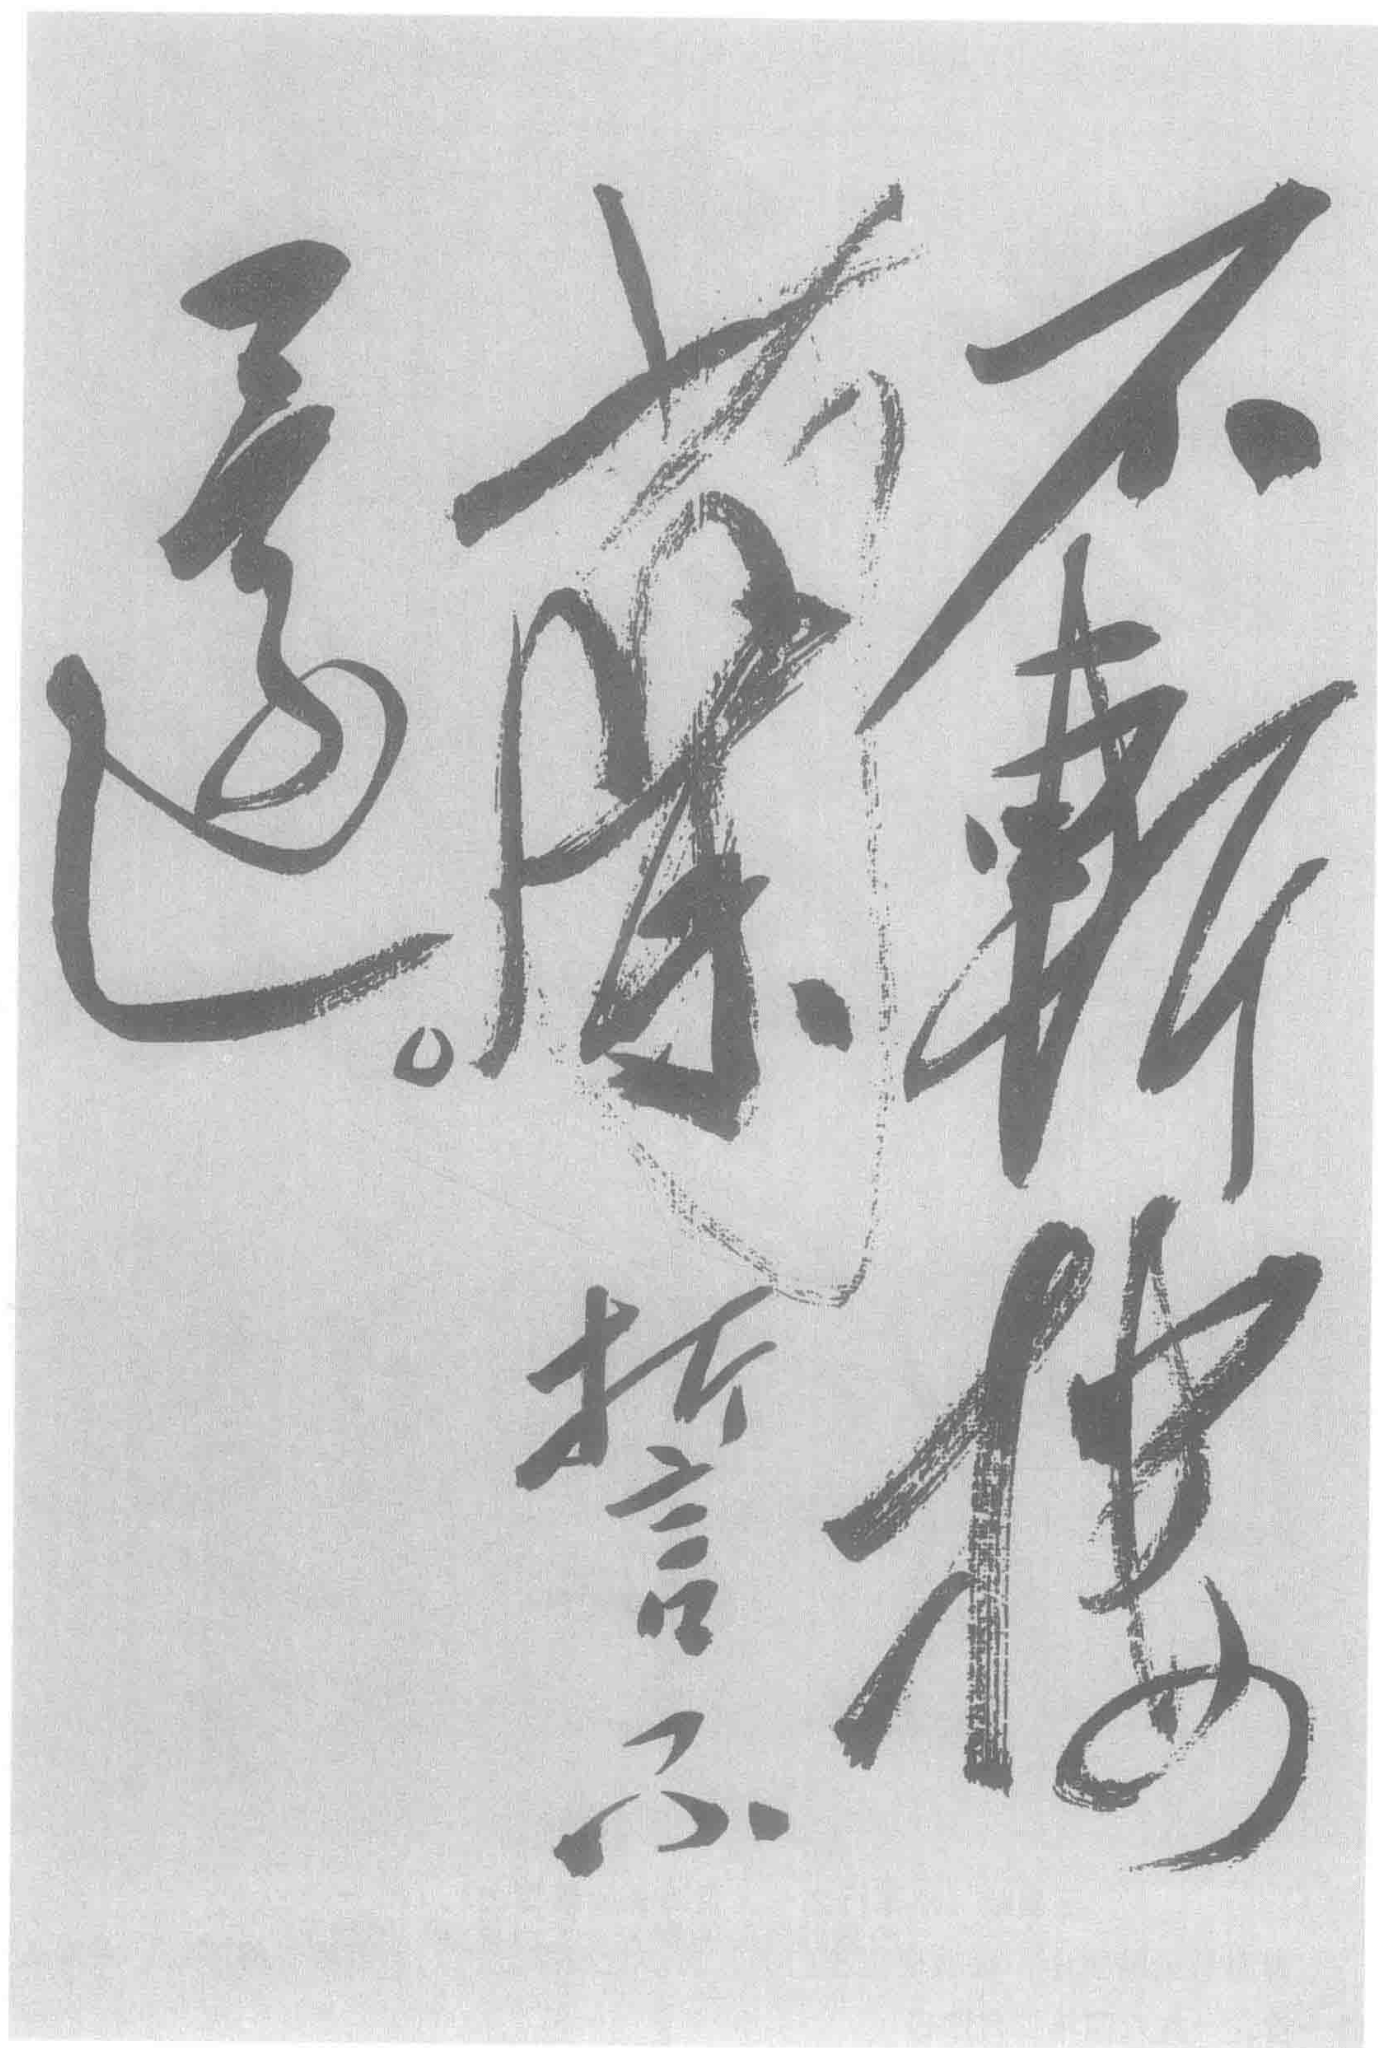 不斬楼
蘭誓不
還。